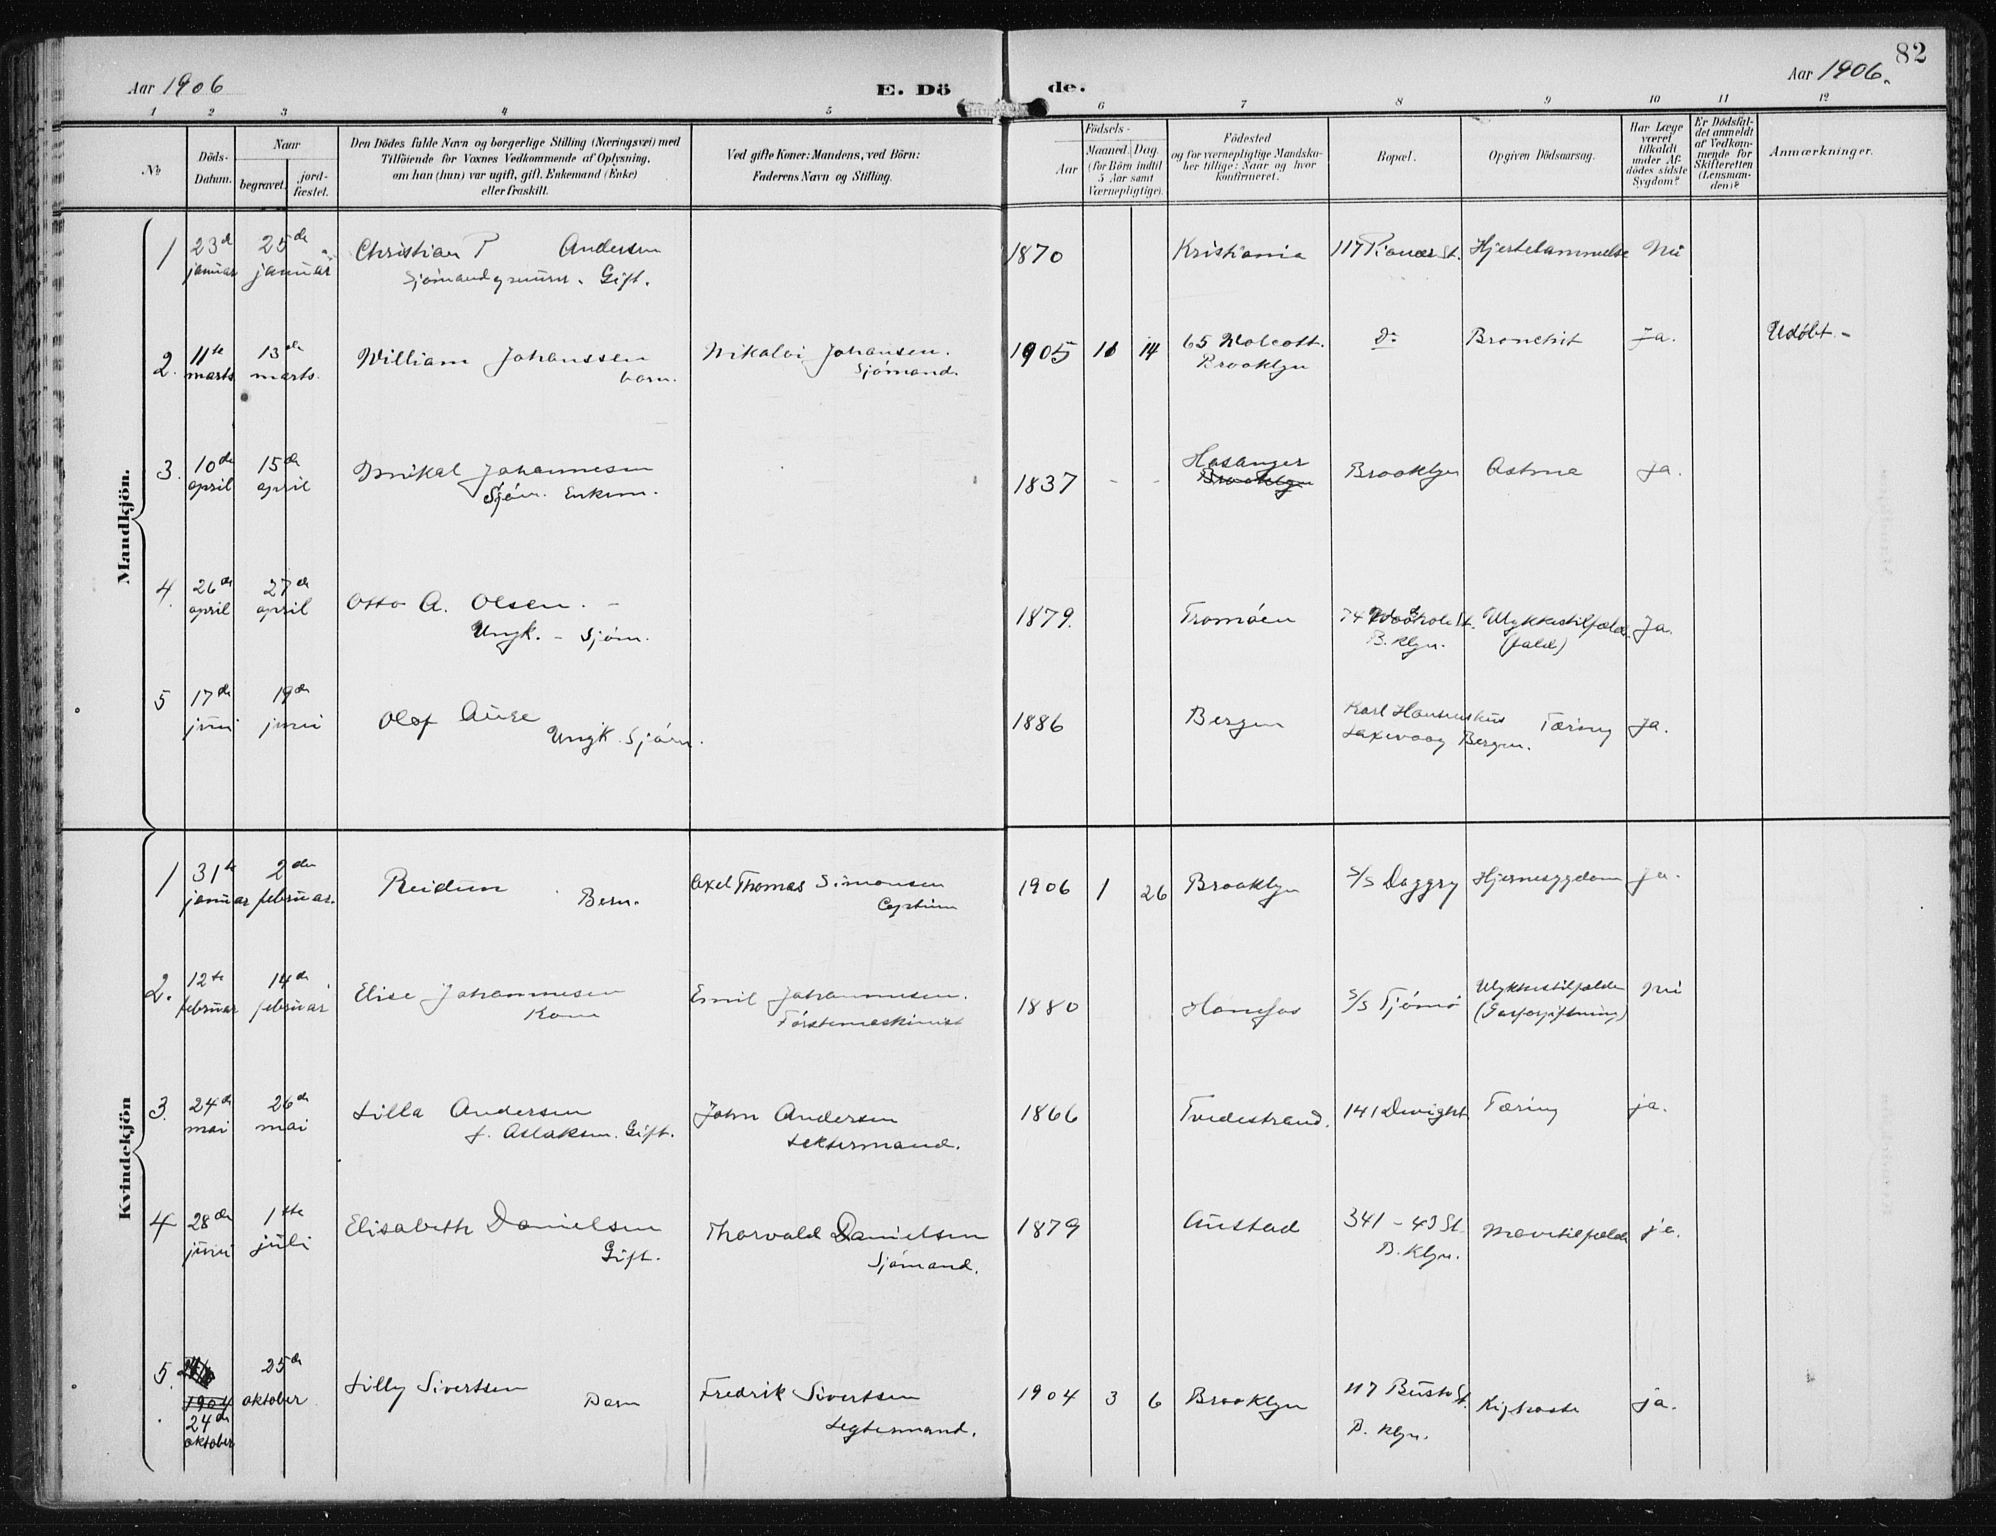 82
Aar 1906
E. Dö
de.
Aar 1906.
1 2 3 4 5 6 7 8 9 10 11 12
No
Döds-
Datum.
Naar
begravet.
jord-
fæstet.
Den Dödes fulde Navn og borgerlige Stilling (Næringsvei) med
Tilföiende for Voxnes Vedkommende af Oplysning,
om han (hun) var ugift, gift, Enkemand (Enke)
eller fraskilt.
Ved gifte Koner: Mandens, ved Börn:
Faderens Navn og Stilling.
Födsels-
Aar
Maaned. Dag.
(for Börn indtil
5 Aar samt
Værnepligtige).
Födested
og for værnepligtige Mandska-
ber tillige: Naar og hvor
konfirmeret.
Bopæl.
Opgiven Dödsaarsag.
Har Læge
været
tilkaldt
under Af-
dödes sidste
Sygdom?
Er Dödsfal-
det anmeldt
af Vedkom-
mende for
Skifteretten
(Lensman-
den)?
Anmærkninger.
Mandkjön.
1 23de januar 25de januar Christian P Andersen
Gift.
1870 Kristiania 117 Pioneer St. Hjertelammelse Nei
2. 11te marts 13de marts. William Johanssen
barn.
Nikolai Johansen.
Sjömand.
1905 14 65 Wolcott.
Brooklyn
Do Bronchit Ja. Udøbt.-
3. 10de april 15de april Mikal Johannesen
Sjöm. Enkem.
1837 - - Hosanger
Brooklyn
Brooklyn Astma Ja.
4. 26de april 27de april Otto A. Olsen. -
Ungk. - Sjöm.
1879. Tromöen 74 St.
B.klyn.
Ulykkestilfælde
(fald)
Ja.
5 17de juni 19de juni Olaf Aure
Ungk. Sjöm.
1886 Bergen Karl Hansens hus
Laxevaag Bergen.
Tæring Ja.
Kvindekjön
1 31te januar 2den februar. Reidun
Barn.
Axel Thomas Simonsen
Captein
1906 1 26 Brooklyn S/S Daggry Hjernesygdom ja.
2. 12te februar 14de februar Elise Johannesen
Kone
Emil Johannesen.
Förstemaskinist
1880 Honefos S/S Tjömö Ulykkestilfælde
(Gasforgiftning)
Nei
3. 24de mai 26de mai Lilla Andersen
f. Aslaksen. Gift.
John Andersen
Lektermand.
1866 Tvedestrand. 141 Dwight Tæring ja.
4 28de juni 1ste juli Elisabeth Danielsen
Gift.
Thorvald Danielsen
Sjömand.
1879 Austad 341 - 43 St.
B.klyn.
Mavetilfælde ja.
5. 1904
24de oktober 25de oktober Lilly Sivertsen
Barn
Fredrik Sivertsen
Legtermand.
1904 3 6 Brooklyn 117 St.
B. klyn.
Kighoste ja.